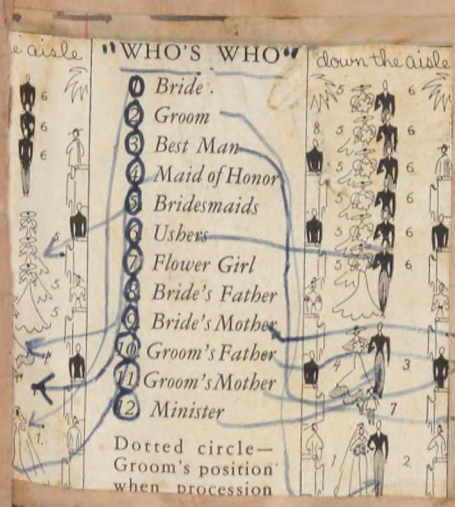 e aisle
"WHO'S WHO"
down the aisle
1 Bride
2 Groom
3 Best Man
4 Maid of Honor
5 Bridesmaids
6 Ushers
7 Flower Girl
8 Bride's Father
9 Bride's Mother
10 Groom's Father
11 Groom's Mother
12 Minister
Dotted circle—
Groom's position
when procession
6
6
6
5
5
1
5
6
8
5
6
5
6
5
6
5
6
4
3
7
1
2